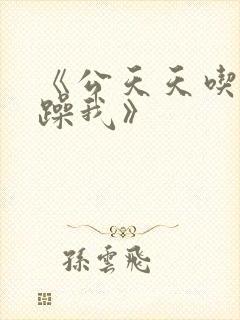 《公天天喫
躁我》
孫雲飛